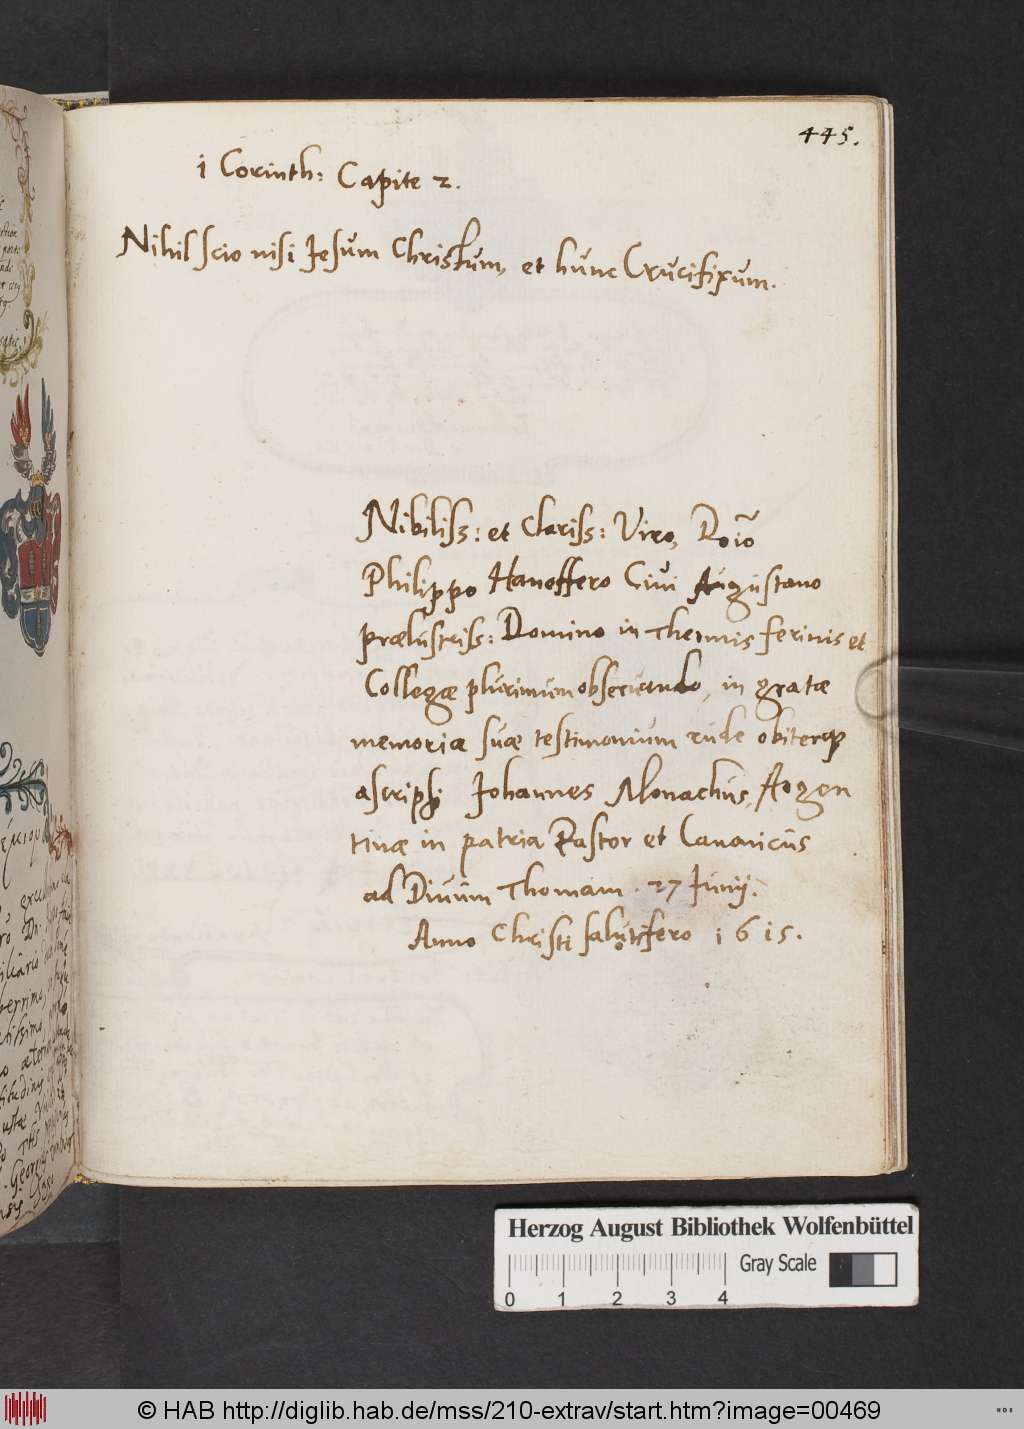 445.
1 Corinth: Capite 2.
Nihil scio nisi Jesum Christum, et hunc Crucifixum.
Nibiliss: et Clariss: Viro, Doiō
Philippo Haneffero Civi Augustano
prælustriss: Domino in Thermis ferinis et
Collegæ plurimum observando, in gratæ
memoriæ suæ testimonium rude obiterq
ascripsi Johannes Monachus, Argen
tinæ in patria Pastor et Canonicus
ad Divum Thomam. 27 Junij.
Anno Christi salutifero 1615.
Herzog August Bibliothek Wolfenbüttel
Gray Scale
0 1 2 3 4
© HAB http://diglib.hab.de/mss/210-extrav/start.htm?image=00469